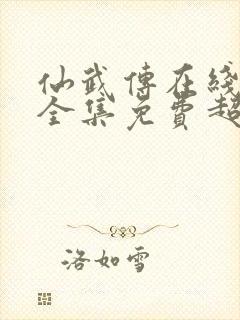 仙武傳在綫
全集免費超
洛如雪